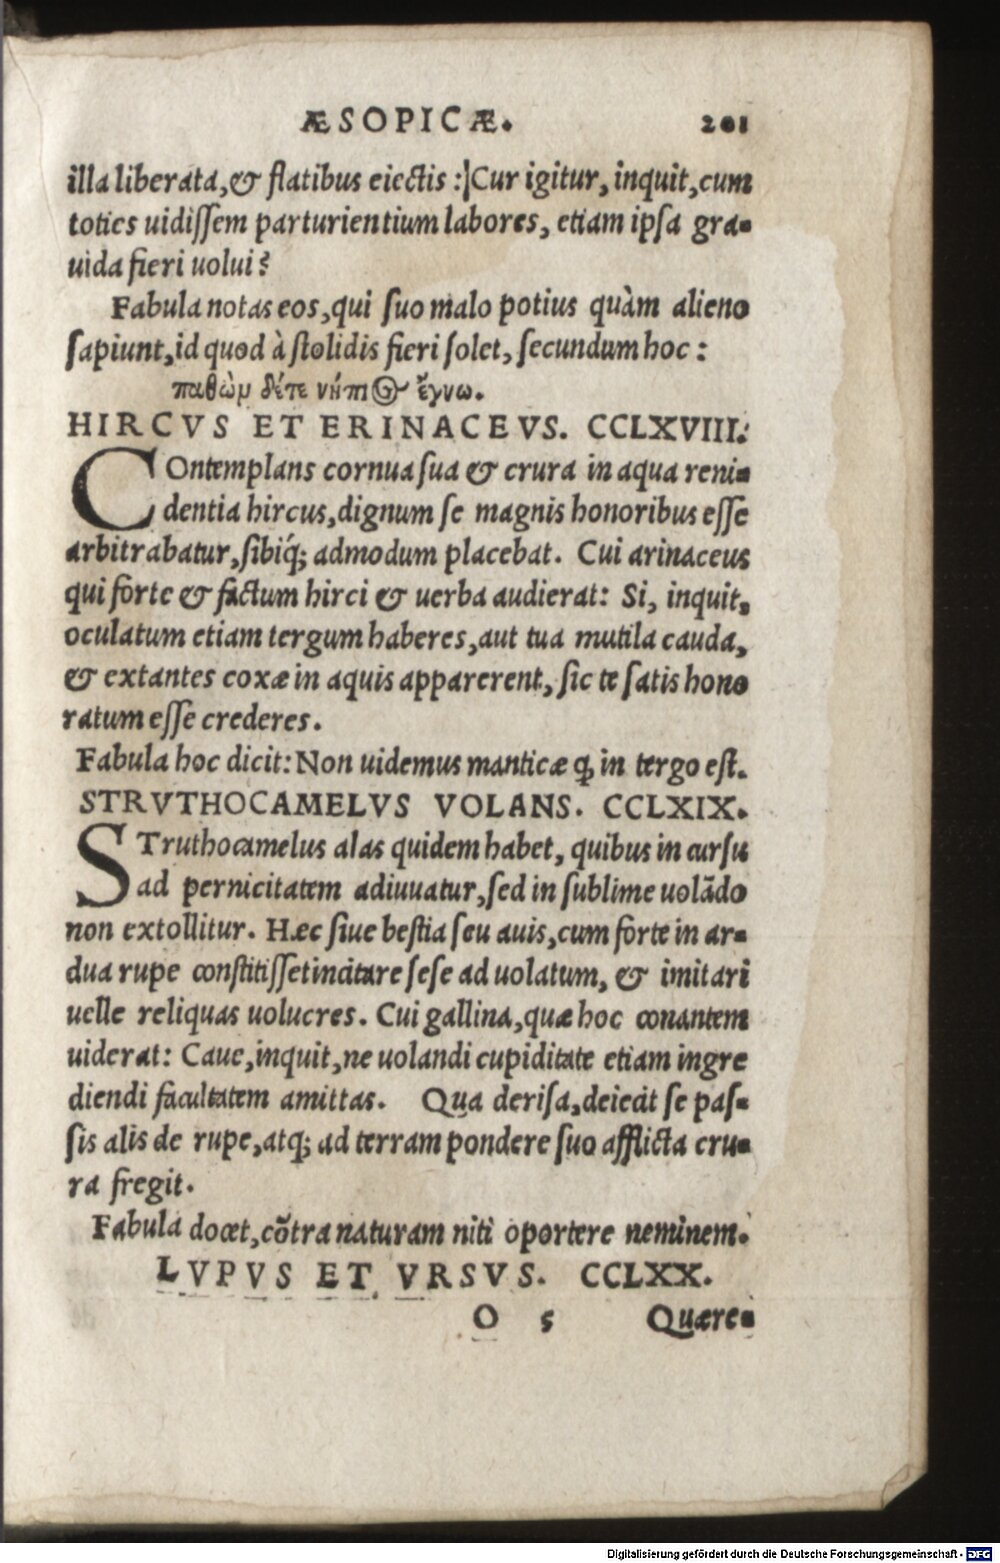 ÆSOPICÆ. 201
illa liberata,& flatibus eiectis : Cur igitur, inquit,cum
toties uidissem parturientium labores, etiam ipsa gra-
uida fieri uolui?
Fabula notas eos,qui suo malo potius quàm alieno
sapiunt,id quod à stolidis fieri solet, secundum hoc :
παθὼμ δέτε νήπιος ἔγνω.
HIRCVS ET ERINACEVS. CCLXVIII.
COntemplans cornua sua & crura in aqua reni-
dentia hircus,dignum se magnis honoribus esse
arbitrabatur,sibiq́; admodum placebat. Cui arinaceus
qui forte & factum hirci & uerba audierat: Si, inquit,
oculatum etiam tergum haberes,aut tua mutila cauda,
& extantes coxæ in aquis apparerent, sic te satis hono
ratum esse crederes.
Fabula hoc dicit: Non uidemus manticæ ꝙ in tergo est.
STRVTHOCAMELVS VOLANS. CCLXIX.
STruthocamelus alas quidem habet, quibus in cursu
ad pernicitatem adiuuatur,sed in sublime uolādo
non extollitur. Hæc siue bestia seu auis,cum forte in ar-
dua rupe constitisset incitare sese ad uolatum, & imitari
uelle reliquas uolucres. Cui gallina,quæ hoc conantem
uiderat: Caue,inquit,ne uolandi cupiditate etiam ingre
diendi facultatem amittas. Qua derisa,deiecit se pas-
sis alis de rupe,atq; ad terram pondere suo afflicta cru-
ra fregit.
Fabula docet,cōtra naturam niti oportere neminem.
LVPVS ET VRSVS. CCLXX.
O 5 Quære-
Digitalisierung gefördert durch die Deutsche Forschungsgemeinschaft - DFG